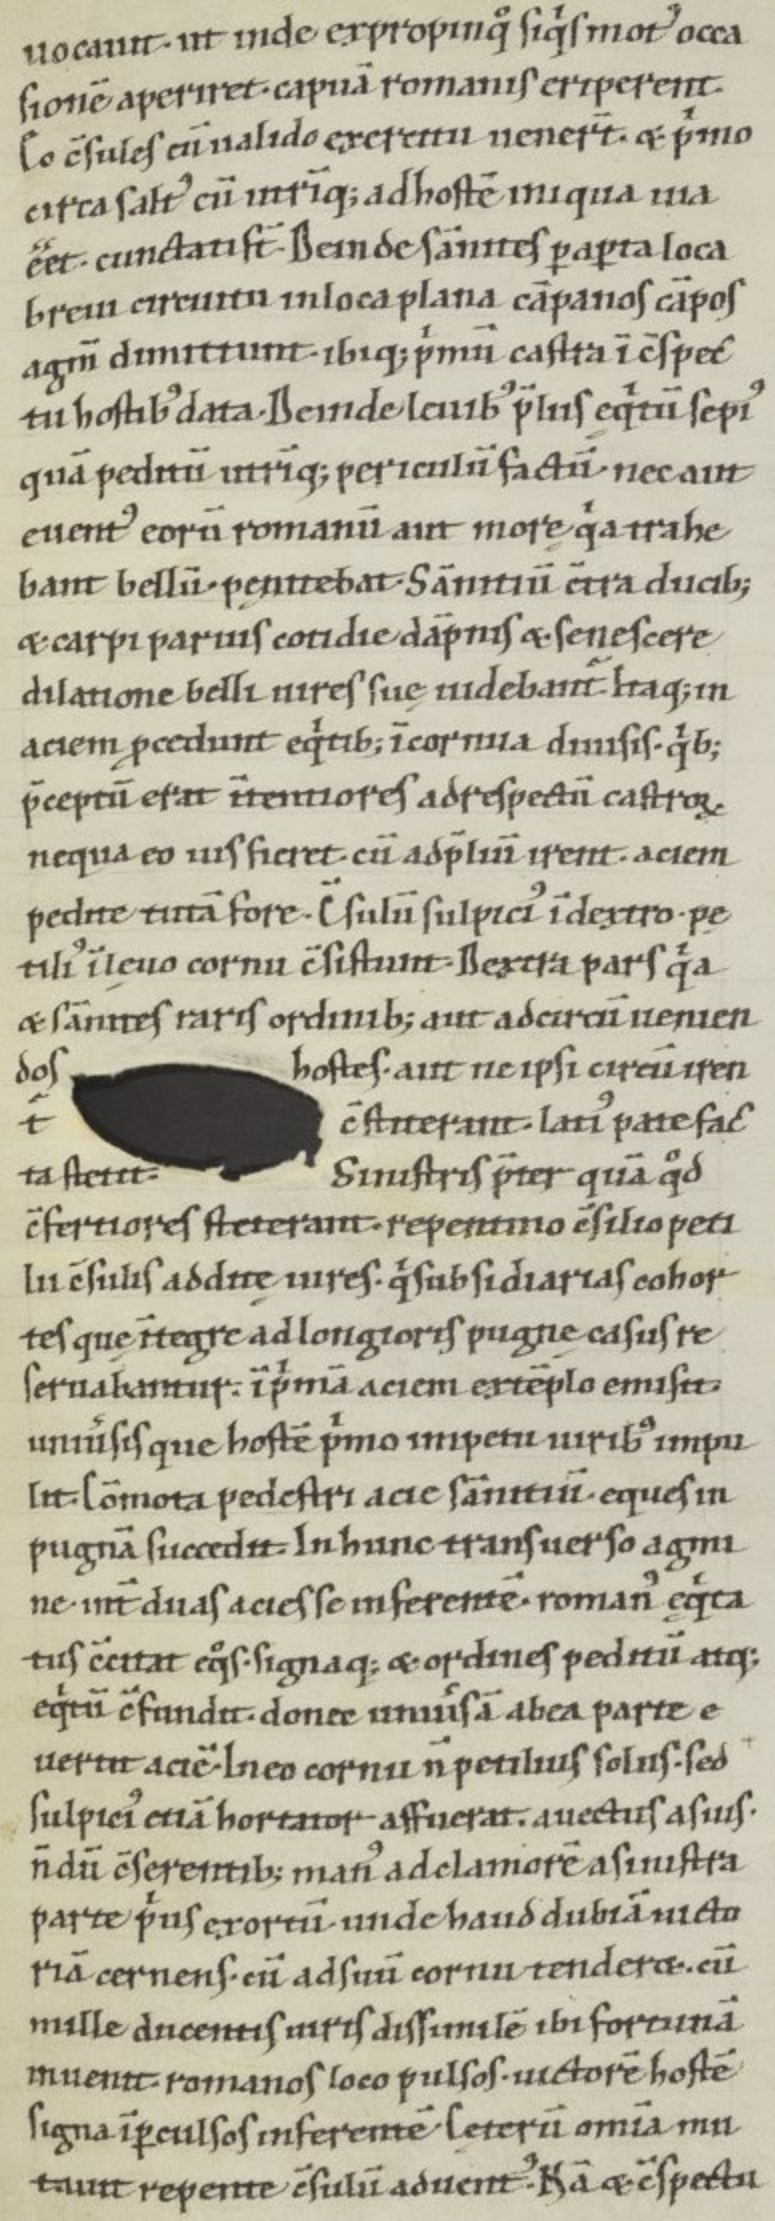 uocauit· ut inde expropinq̊ siq̓s mot᾿ occa
sionē aperiret· capuā romanis eriperent·
Co c̄sules cū ualido exercitu uener̄t· & p̓mo
circa salt᾿ cū utrīq; ad hostē iniqua uia
ēēt· cunctati st̄· Deinde sānites ꝑ aꝑta loca
breui circuitu in loca plana cāpanos cāpos
agm̄ dimittunt· ibiq; p̓mū castra ī c̄spec̄
tu hostib᾿ data· Deinde leuib᾿ p̄lus eq̓tū sepi᾿
quā peditū utrīq; periculū factū· nec aut
euent᾿ eorū romanū aut more q̓a trahe
bant bellū· pęnitebat· Sānitiū c̄tra ducib;
& carpi paruis cotidie dāpnis & senescere
dilatione belli uires suę uidebant̄· Itaq; in
aciem ꝓcedunt eq̓tib; ī cornua diuisis· q̓b;
p̄ceptū erat ītentiores ad respectū castroꝝ
nequa eo uis fieret· cū ad p̄liū irent· aciem
pedite tutā fore· C̄sulū sulpici᾿ ī dextro· pę
tili᾿ ī lęuo cornu c̄sistunt· Dextra pars q̓a
& sānites raris ordinib; aut ad circū uenien
dos hostes· aut ne ipsi circū iren
t̄ c̄stiterant· lati᾿ patefac̄
ta stetit· Sinistris p̄ter quā q̊d
c̄fertiores steterant· repentino c̄silio pęti
lii c̄sulis additę uires· q̓ subsidiarias cohor
tes quę ītegre ad longioris pugnę casus re
seruabantur· ī p̓mā aciem extēplo emisit·
uniu͛sis que hostē p̓mo impetu uirib᾿ impu
lit· Cōmota pedestri acie sānitiū· eques in
pugnā succedit· In hunc transuerso agmi
ne· int̄ duas acies se inferentē· roman᾿ eq̓ta
tus c̄citat eq̊s· signaq; & ordines peditū atq;
eq̓tū c̄fundit· donec uniu͛sā ab ea parte e
uertit aciē· In eo cornu n̄ petilius solus· sed
sulpici᾿ etiā hortator affuerat· auectus a suis·
n̄dū c̄serentib; man᾿ ad clamorē a sinistra
parte p̓us exortū· unde haud dubiā uicto
riā cernens· cū ad suū cornu tender&· cū
mille ducentis uiris dissimilē ibi fortunā
inuenit· romanos loco pulsos· uictorē hostē
signa ī ꝑculsos inferentē· Cęterū om̄ia mu
tauit repente c̄sulū aduent᾿· Nā & c̄spectu